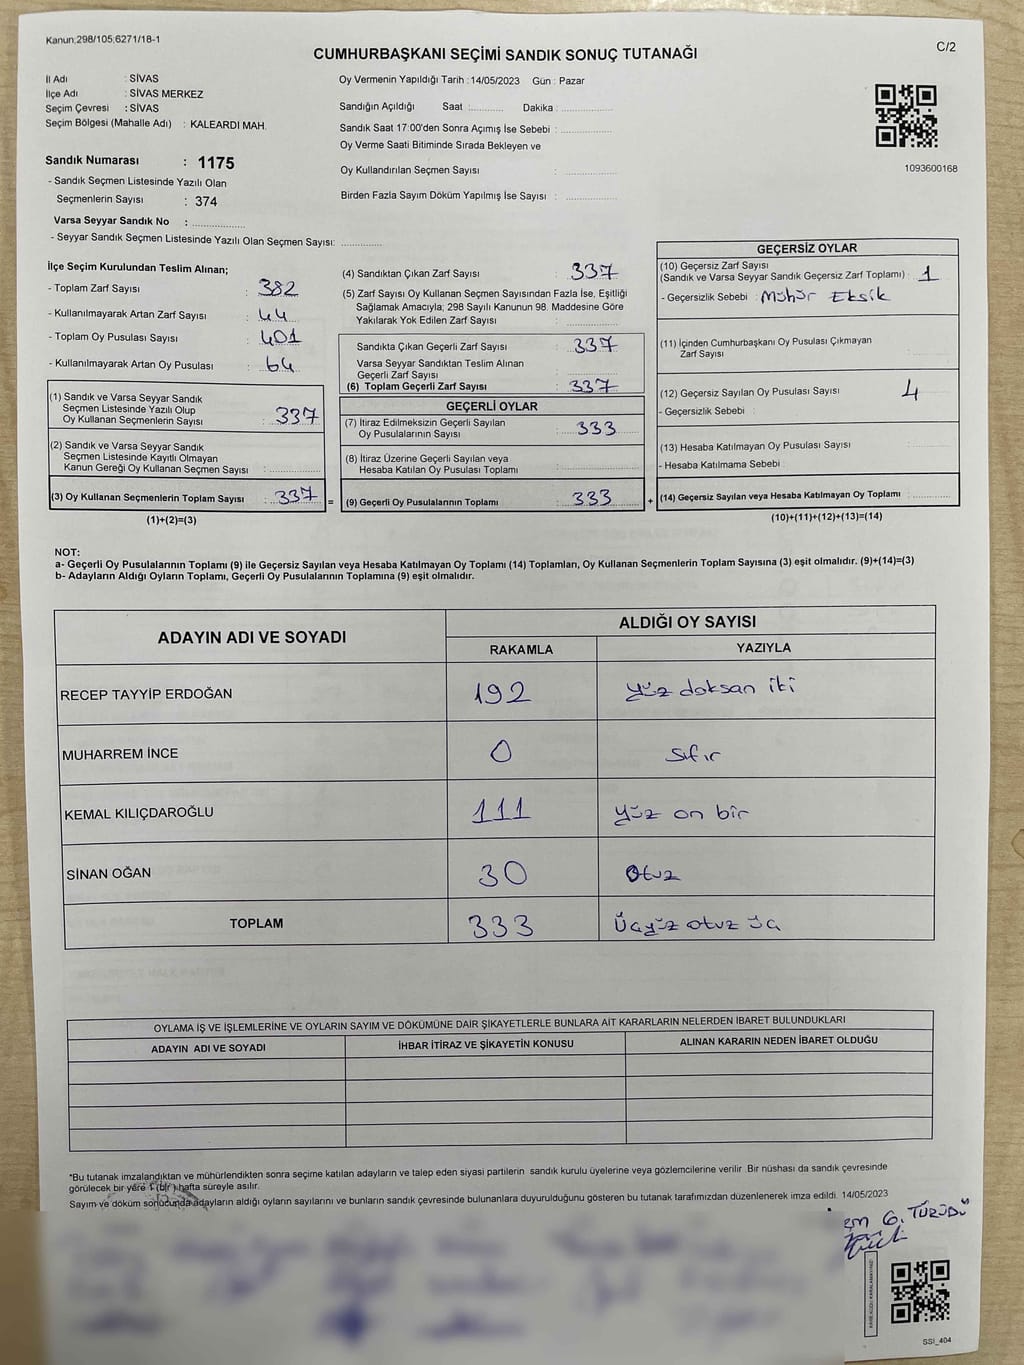 Kanun;298/105;6271/18-1
C/2
CUMHURBAŞKANI SEÇİMİ SANDIK SONUÇ TUTANAĞI
İl Adı : SİVAS
İlçe Adı : SİVAS MERKEZ
Seçim Çevresi : SİVAS
Seçim Bölgesi (Mahalle Adı) : KALEARDI MAH.
Oy Vermenin Yapıldığı Tarih : 14/05/2023 Gün : Pazar
Sandığın Açıldığı Saat :........... Dakika :................
Sandık Saat 17:00'den Sonra Açımış İse Sebebi : ................
Oy Verme Saati Bitiminde Sırada Bekleyen ve
Oy Kullandırılan Seçmen Sayısı : ................
Birden Fazla Sayım Döküm Yapılmış İse Sayısı : ................
1093600168
Sandık Numarası : 1175
- Sandık Seçmen Listesinde Yazılı Olan
Seçmenlerin Sayısı : 374
Varsa Seyyar Sandık No : ................
- Seyyar Sandık Seçmen Listesinde Yazılı Olan Seçmen Sayısı: ............
İlçe Seçim Kurulundan Teslim Alınan;
- Toplam Zarf Sayısı : 382
- Kullanılmayarak Artan Zarf Sayısı : 44
- Toplam Oy Pusulası Sayısı : 401
- Kullanılmayarak Artan Oy Pusulası : 64
(1) Sandık ve Varsa Seyyar Sandık
Seçmen Listesinde Yazılı Olup
Oy Kullanan Seçmenlerin Sayısı : 337
(2) Sandık ve Varsa Seyyar Sandık
Seçmen Listesinde Kayıtlı Olmayan
Kanun Gereği Oy Kullanan Seçmen Sayısı : ................
(3) Oy Kullanan Seçmenlerin Toplam Sayısı : 337 =
(1)+(2)=(3)
(4) Sandıktan Çıkan Zarf Sayısı : 337
(5) Zarf Sayısı Oy Kullanan Seçmen Sayısından Fazla İse, Eşitliği
Sağlamak Amacıyla; 298 Sayılı Kanunun 98. Maddesine Göre
Yakılarak Yok Edilen Zarf Sayısı : ................
Sandıkta Çıkan Geçerli Zarf Sayısı : 337
Varsa Seyyar Sandıktan Teslim Alınan
Geçerli Zarf Sayısı : ................
(6) Toplam Geçerli Zarf Sayısı : 337
GEÇERLİ OYLAR
(7) İtiraz Edilmeksizin Geçerli Sayılan
Oy Pusulalarının Sayısı : 333
(8) İtiraz Üzerine Geçerli Sayılan veya
Hesaba Katılan Oy Pusulası Toplamı : ................
(9) Geçerli Oy Pusulalarının Toplamı : 333 +
GEÇERSİZ OYLAR
(10) Geçersiz Zarf Sayısı
(Sandık ve Varsa Seyyar Sandık Geçersiz Zarf Toplamı) : 1
- Geçersizlik Sebebi : Mühür Eksik
(11) İçinden Cumhurbaşkanı Oy Pusulası Çıkmayan
Zarf Sayısı
(12) Geçersiz Sayılan Oy Pusulası Sayısı : 4
- Geçersizlik Sebebi :
(13) Hesaba Katılmayan Oy Pusulası Sayısı :
- Hesaba Katılmama Sebebi :
(14) Geçersiz Sayılan veya Hesaba Katılmayan Oy Toplamı : ............
(10)+(11)+(12)+(13)=(14)
NOT:
a- Geçerli Oy Pusulalarının Toplamı (9) ile Geçersiz Sayılan veya Hesaba Katılmayan Oy Toplamı (14) Toplamları, Oy Kullanan Seçmenlerin Toplam Sayısına (3) eşit olmalıdır. (9)+(14)=(3)
b- Adayların Aldığı Oyların Toplamı, Geçerli Oy Pusulalarının Toplamına (9) eşit olmalıdır.
ADAYIN ADI VE SOYADI ALDIĞI OY SAYISI
RAKAMLA YAZIYLA
RECEP TAYYİP ERDOĞAN 192 yüz doksan iki
MUHARREM İNCE 0 sıfır
KEMAL KILIÇDAROĞLU 111 yüz on bir
SİNAN OĞAN 30 otuz
TOPLAM 333 Üçyüz otuz üç
OYLAMA İŞ VE İŞLEMLERİNE VE OYLARIN SAYIM VE DÖKÜMÜNE DAİR ŞİKAYETLERLE BUNLARA AİT KARARLARIN NELERDEN İBARET BULUNDUKLARI
ADAYIN ADI VE SOYADI İHBAR İTİRAZ VE ŞİKAYETİN KONUSU ALINAN KARARIN NEDEN İBARET OLDUĞU
*Bu tutanak imzalandıktan ve mühürlendikten sonra seçime katılan adayların ve talep eden siyasi partilerin sandık kurulu üyelerine veya gözlemcilerine verilir .Bir nüshası da sandık çevresinde
görülecek bir yere 1 (bir) hafta süreyle asılır.
Sayım ve döküm sonucunda adayların aldığı oyların sayılarını ve bunların sandık çevresinde bulunanlara duyurulduğunu gösteren bu tutanak tarafımızdan düzenlenerek imza edildi. 14/05/2023
G. TÜRÜDÜ
KAREKODU KARALAMAYINIZ!
SSİ_404